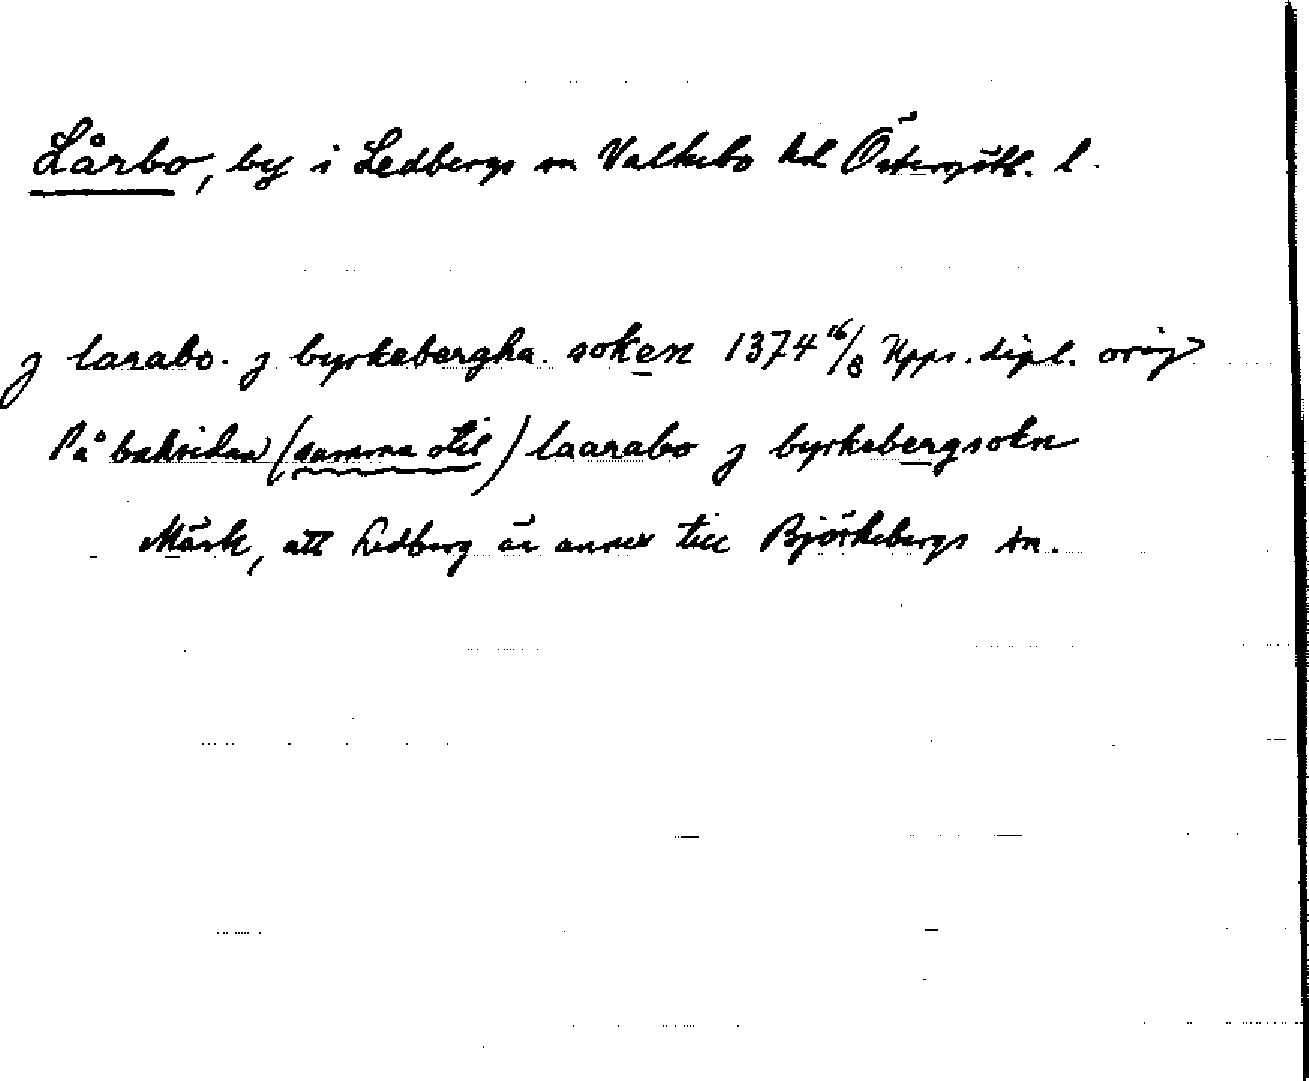 Lårbo, by i Ledbergs sn Valkebo hd Östergötl. l.
j larabo. j byrkebergha. soken 1374 16/8 Upps. dipl. orig
På baksidan (samma stil) laarabo j byrkebergsokn
Märk, att Ledberg är annex till Björkebergs sn.